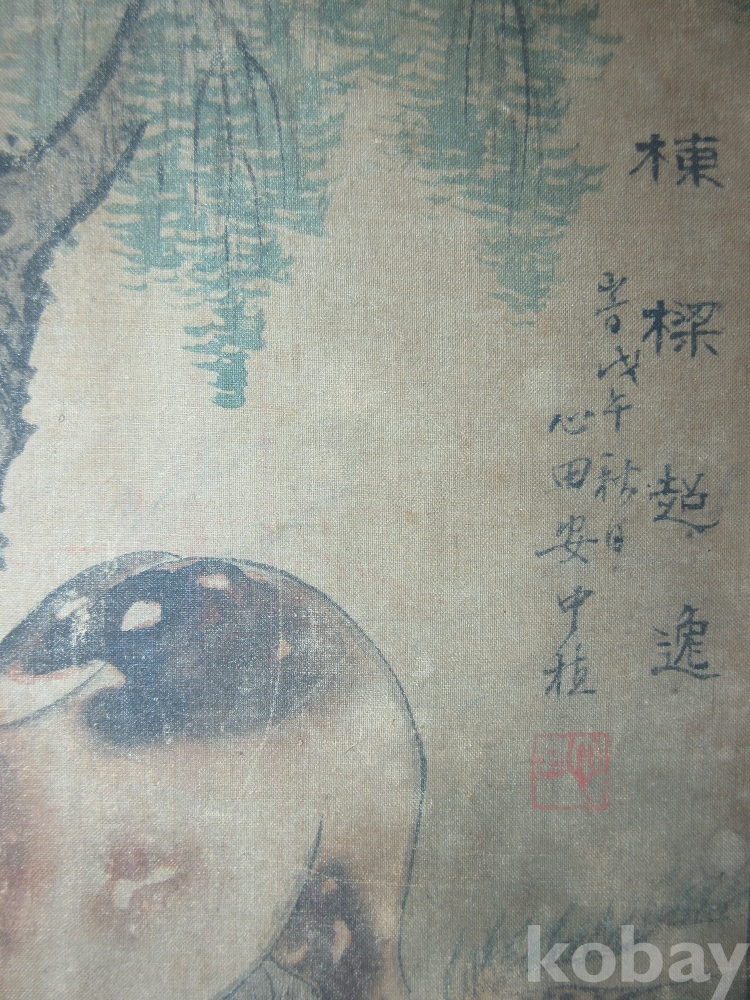 棟樑超逸
旹戊午秋日
心田安中植
kobay